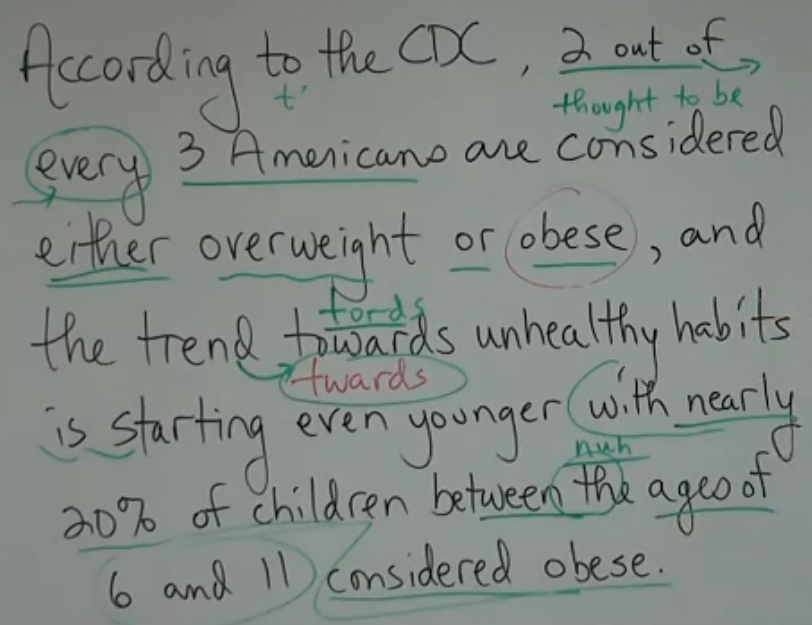 According to the CDC, 2 out of
t'
thought to be
every 3 Americans are considered
either overweight or obese, and
tords
the trend towards unhealthy habits
twards
is starting even younger with nearly
nuh
20% of children between the ages of
6 and 11 considered obese.